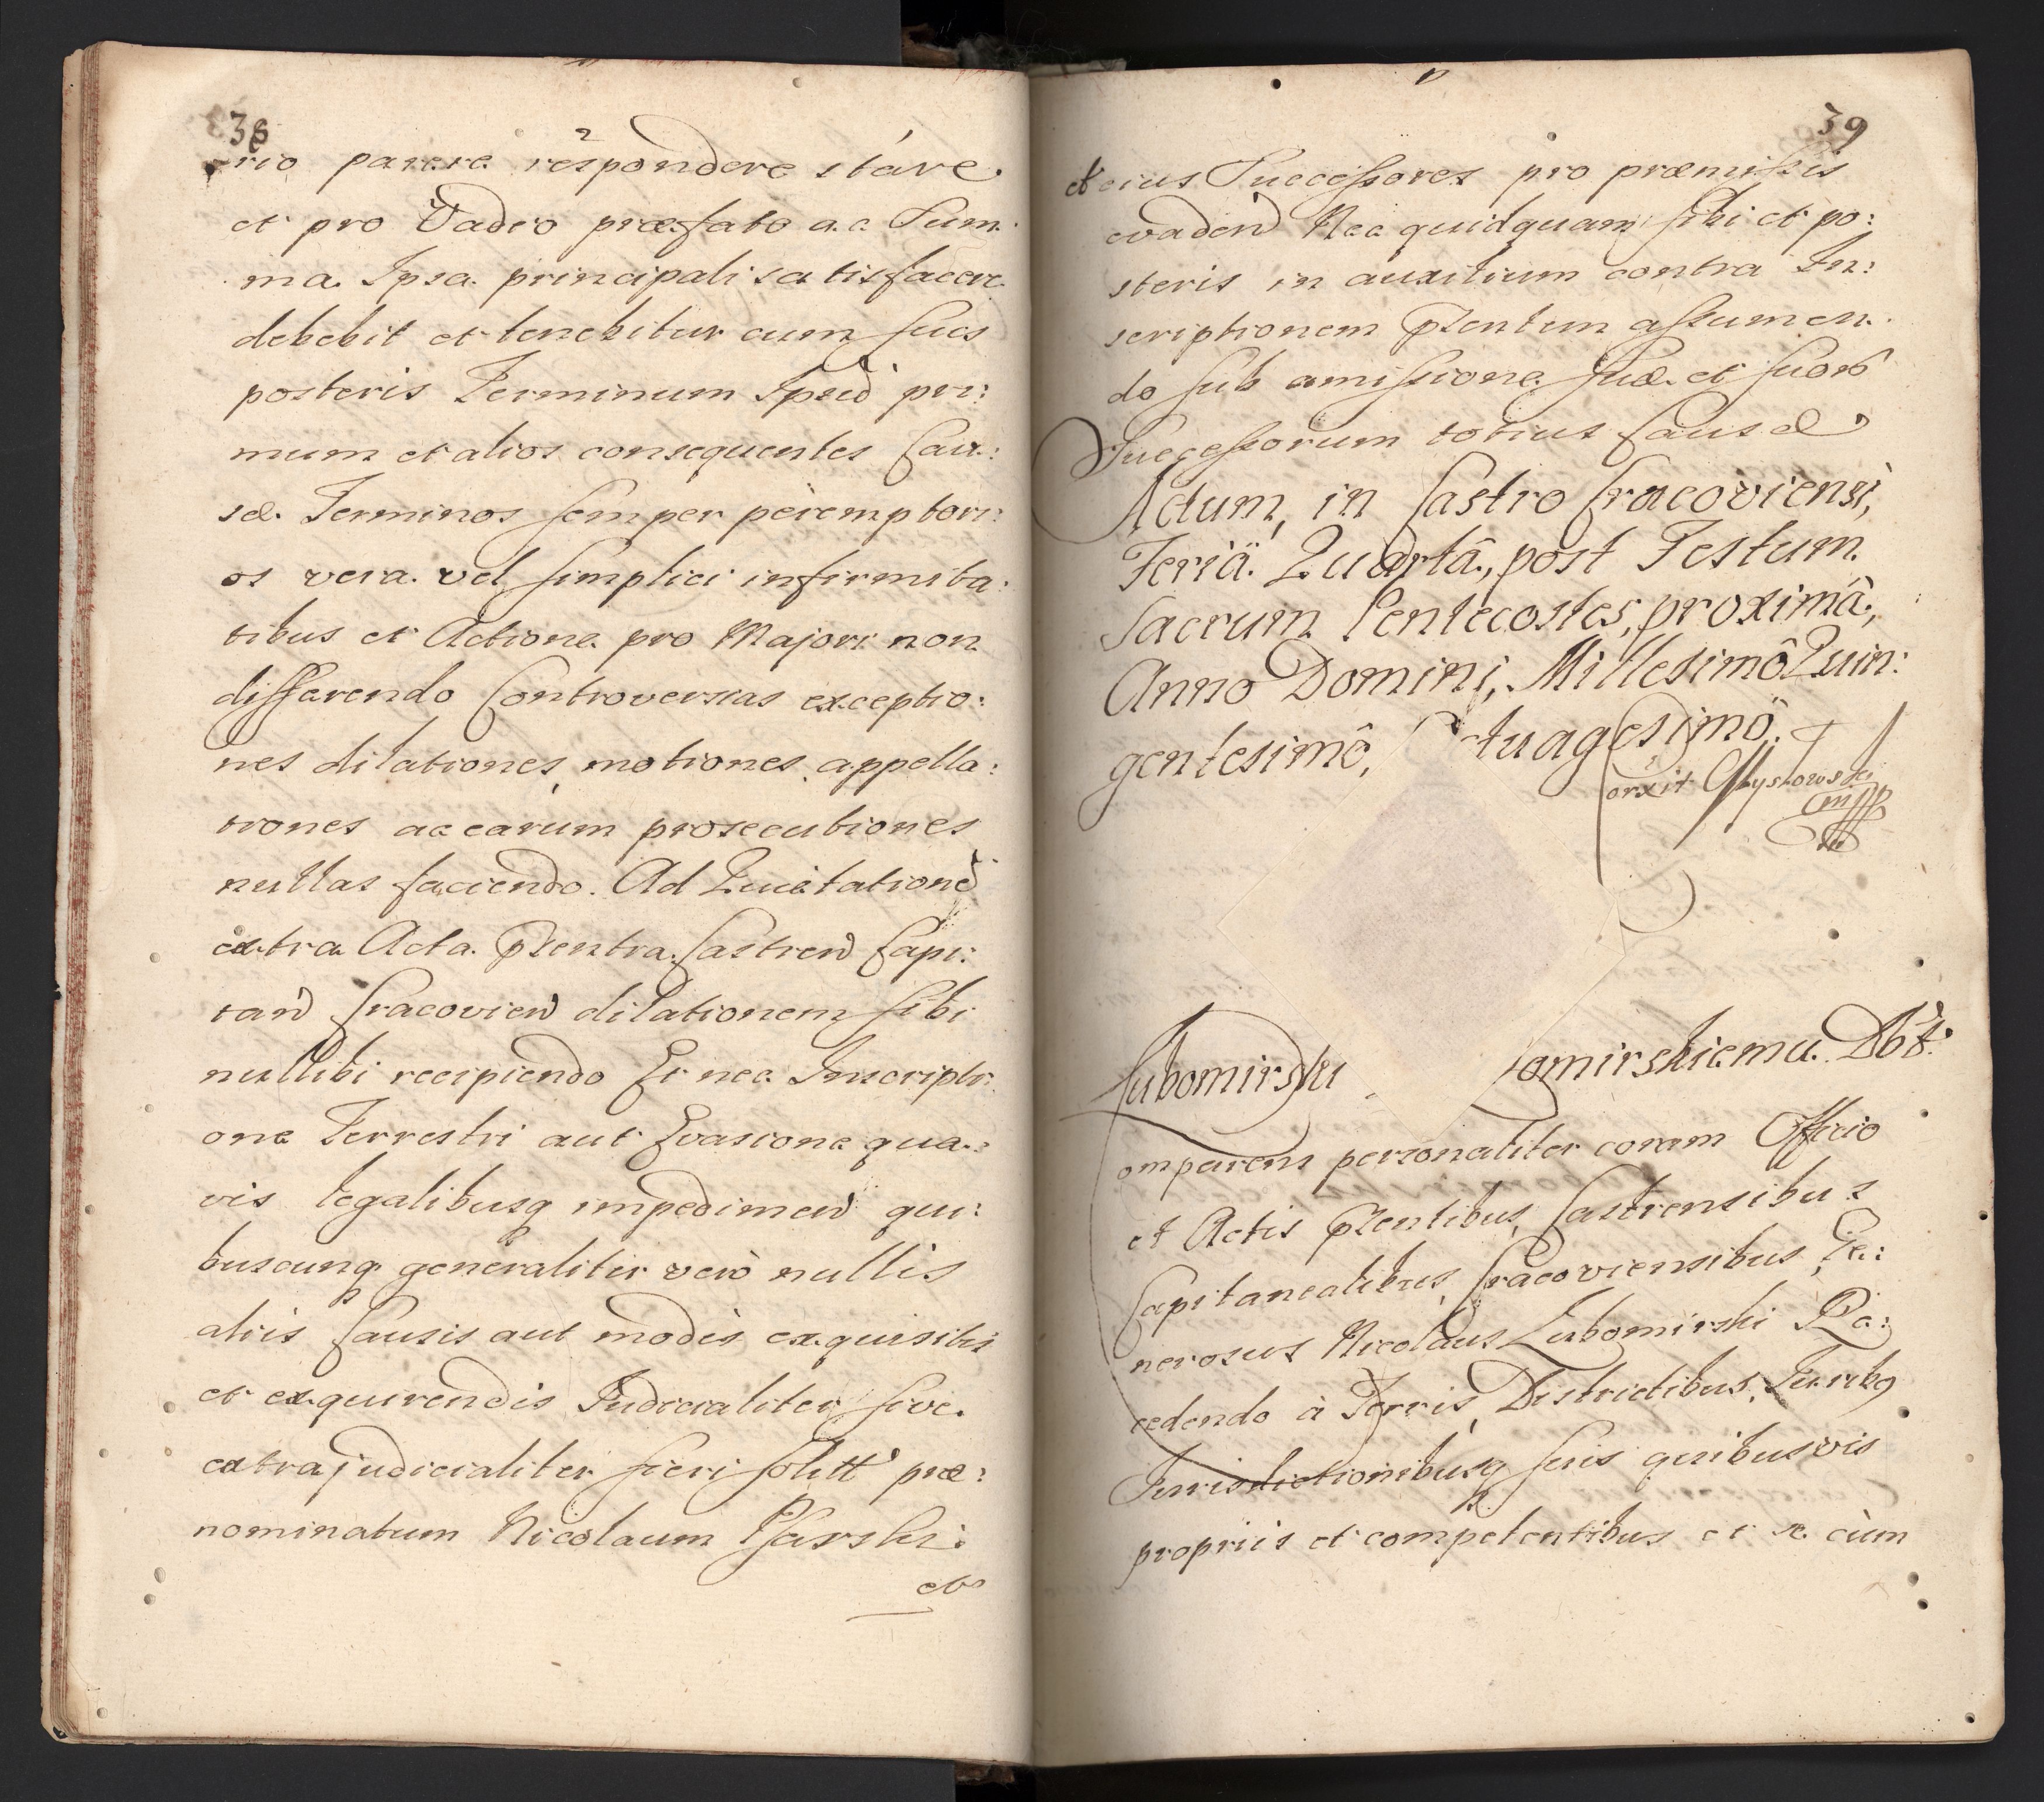 38
rio parere respondere stare
et pro Vadio præfato ac Sum:
ma Ipsa principali satisfacere
debebit et tenebitur cum suis
posteris Terminum Ipsũ pri:
mum et alios consequentes Cau:
sæ Terminos semper peremptori:
os vera vel simplici infirmita:
tibus et Actione pro Majori non
differendo Controversias exceptio:
nes dilationes, motiones appella:
tiones ac earum prosecutiones
nullas faciendo. Ad Quietationẽ
extra Acta Pntia Castren Capi:
tan Cracovien dilationem sibi
nullibi recipiendo Et nec Inscripti:
one Terrestri aut Evasione qua:
vis legalibusq impedimen qui:
buscunq generaliter verò nullis
aliis Causis aut modis exquisitis
et exquirendis Judicialiter sive
extrajudicialiter fieri solitt præ:
nominatum Nicolaum Psarski:
et
39
et eius Successores pro præmissis
evaden Nec quidquam sibi et po:
steris in auxilium contra In:
scriptionem Pntem assumen:
do sub amissione suæ et suor
Successorum totius Causæ
Actum, in Castro Cracoviensi,
Feriâ Quartâ, post Festum
Sacrum Pentecostes, proximâ,
Anno Domini, Millesimô Quin:
gentesimô, tuagesimô.
Corxit
mpp
Lubomirski omirskiemu Dbt.
omparens personaliter coram Officio
et Actis Pntibus, Castrensibus
Capitanealibus, Cracoviensibus, Ge:
nerosus Nicolaus Lubomirski Re:
cedendo à Terris, Districtibus, Juribq
Jurisdictionibusq suis quibusvis
propriis et competentibus et se cùm